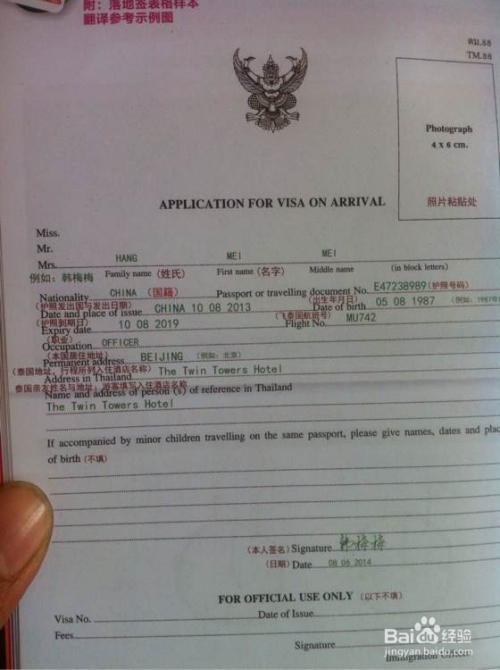 附：落地签表格样本
翻译参考示例图
ตม.88
TM.88
Photograph
4 x 6 cm.
照片粘贴处
APPLICATION FOR VISA ON ARRIVAL
Miss.
Mr.
Mrs. HANG MEI MEI
例如：韩梅梅 Family name (姓氏) First name (名字) Middle name (in block letters)
Nationality CHINA (国籍) Passport or travelling document No. E47238989 (护照号码)
(护照发出国与发出日期) (出生年月日)
Date and place of issue CHINA 10 08 2013 Date of birth 05 08 1987 (例如：1987年
(护照到期日) (飞泰国航班号)
Expiry date 10 08 2019 Flight No. MU742
(职业)
Occupation OFFICER
(本国居住地址)
Permanent address BEIJING (例如：北京)
(泰国地址，行程所列入住酒店名称) The Twin Towers Hotel
Address in Thailand
泰国亲友姓名与地址，游客填写入住酒店名称
Name and address of person (s) of reference in Thailand
The Twin Towers Hotel
If accompanied by minor children travelling on the same passport, please give names, dates and plac
of birth (不填)
(本人签名) Signature 韩梅梅
(日期) Date 08 06 2014
FOR OFFICIAL USE ONLY (以下不填)
Visa No. Date of Issue
Fees
Signature
Immigration Officer
Baidu 经验
jingyan.baidu.com